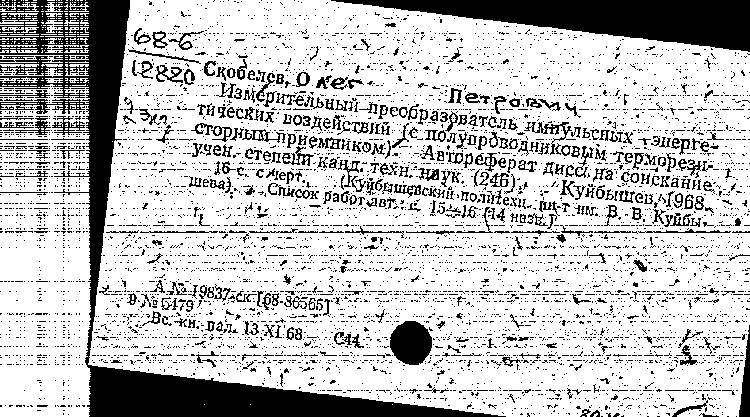 68-6
12820
Скобелев, Олег Петрович
Измерительный преобразователь импульсных энерге-
тических воздействий (с полупроводниковым терморези-
сторным приемником). Автореферат дисс. на соискание
учен. степени канд. техн. наук. (246). Куйбышев, 1968.
16 с. с черт. (Куйбышевский политехн. ин-т им. В. В. Куйбы-
шева). Список работ авт.: с. 15—16 (14 назв.)
А № 19837 ск [68-86565]
в № 5479
Вс. кн. пал. 13 XI 68 С44